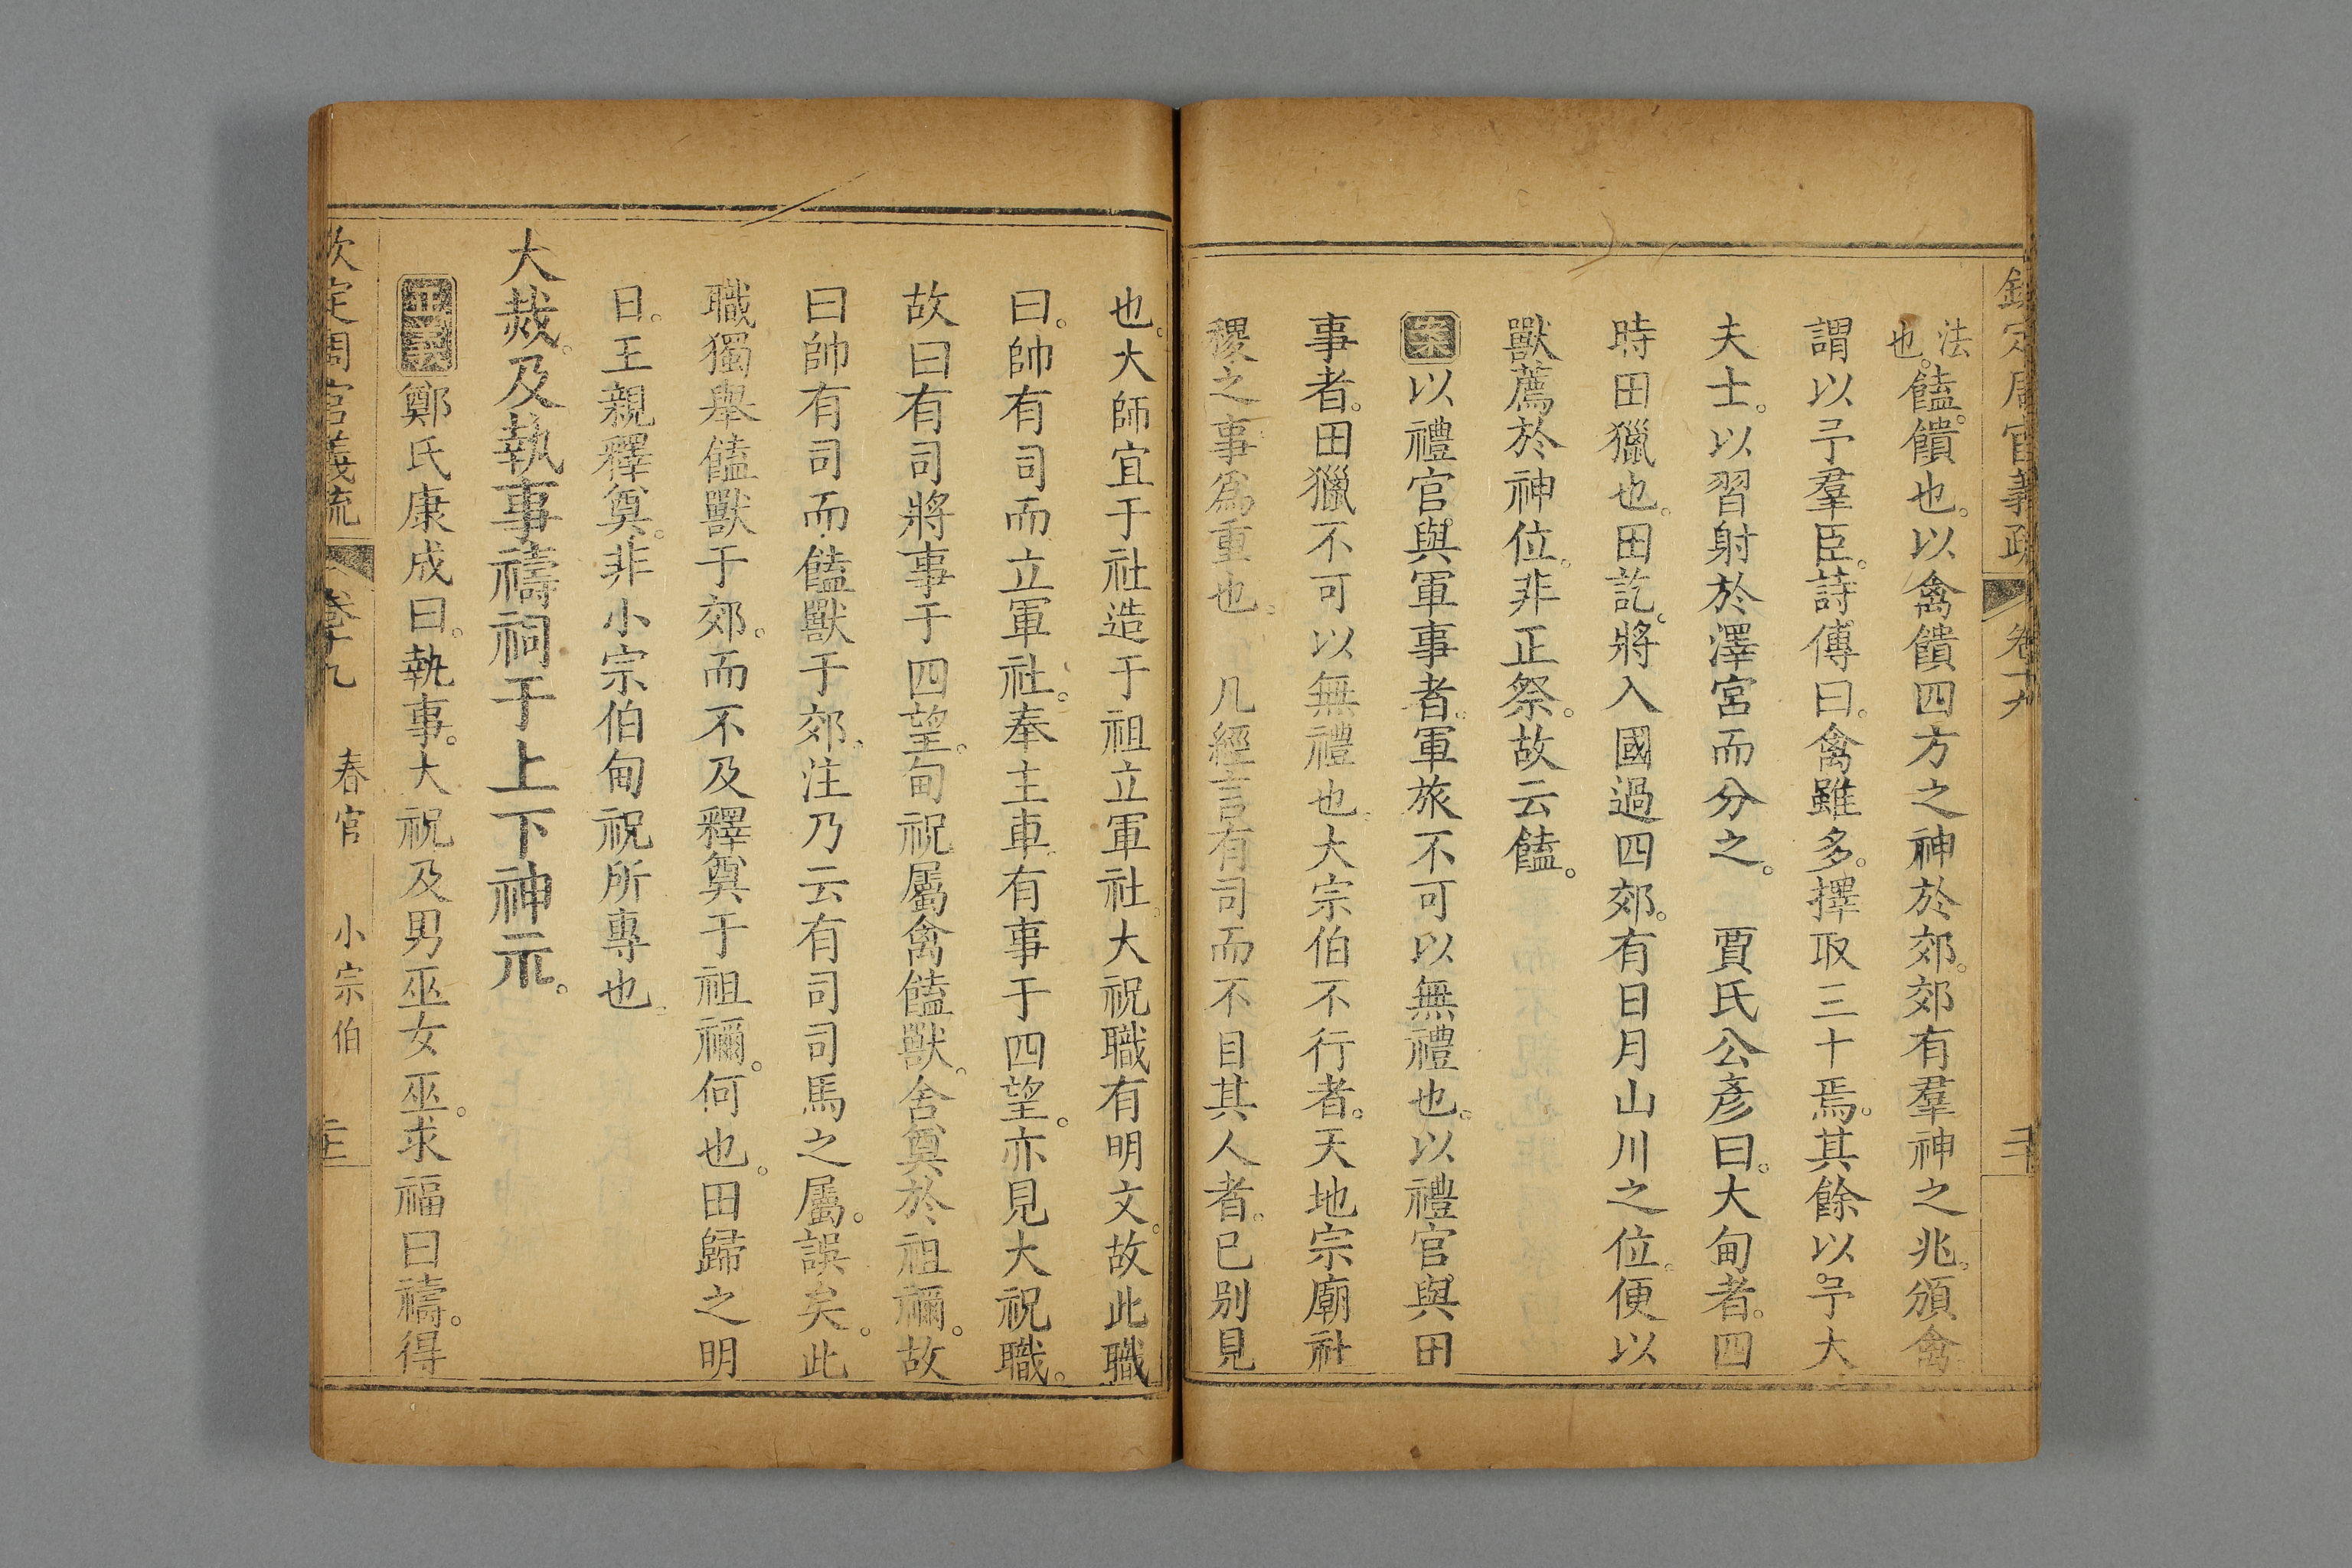 欽定周官義疏 卷十九 二十
法
也。饁。饋也。以禽饋四方之神於郊。郊有羣神之兆。頒禽
謂以予羣臣。詩傳曰。禽雖多。擇取三十焉。其餘以予大
夫士。以習射於澤宮而分之。 賈氏公彥曰。大甸者。四
時田獵也。田訖。將入國過四郊。有日月山川之位。便以
獸薦於神位。非正祭。故云饁。
案以禮官與軍事者。軍旅不可以無禮也。以禮官與田
事者。田獵不可以無禮也。大宗伯不行者。天地宗廟社
稷之事爲重也。 凡經言有司而不目其人者。已別見
也。大師宜于社造于祖立軍社。大祝職有明文。故此職
曰。帥有司而立軍社。奉主車。有事于四望。亦見大祝職。
故曰有司將事于四望。甸祝屬禽饁獸。舍奠於祖禰。故
曰帥有司而饁獸于郊。注乃云有司司馬之屬。誤矣。此
職獨舉饁獸于郊。而不及釋奠于祖禰。何也。田歸之明
日。王親釋奠。非小宗伯甸祝所專也。
大烖。及執事禱祠于上下神示。
正義鄭氏康成曰。執事。大祝及男巫女巫。求福曰禱。得
欽定周官義疏 卷十九 春官 小宗伯